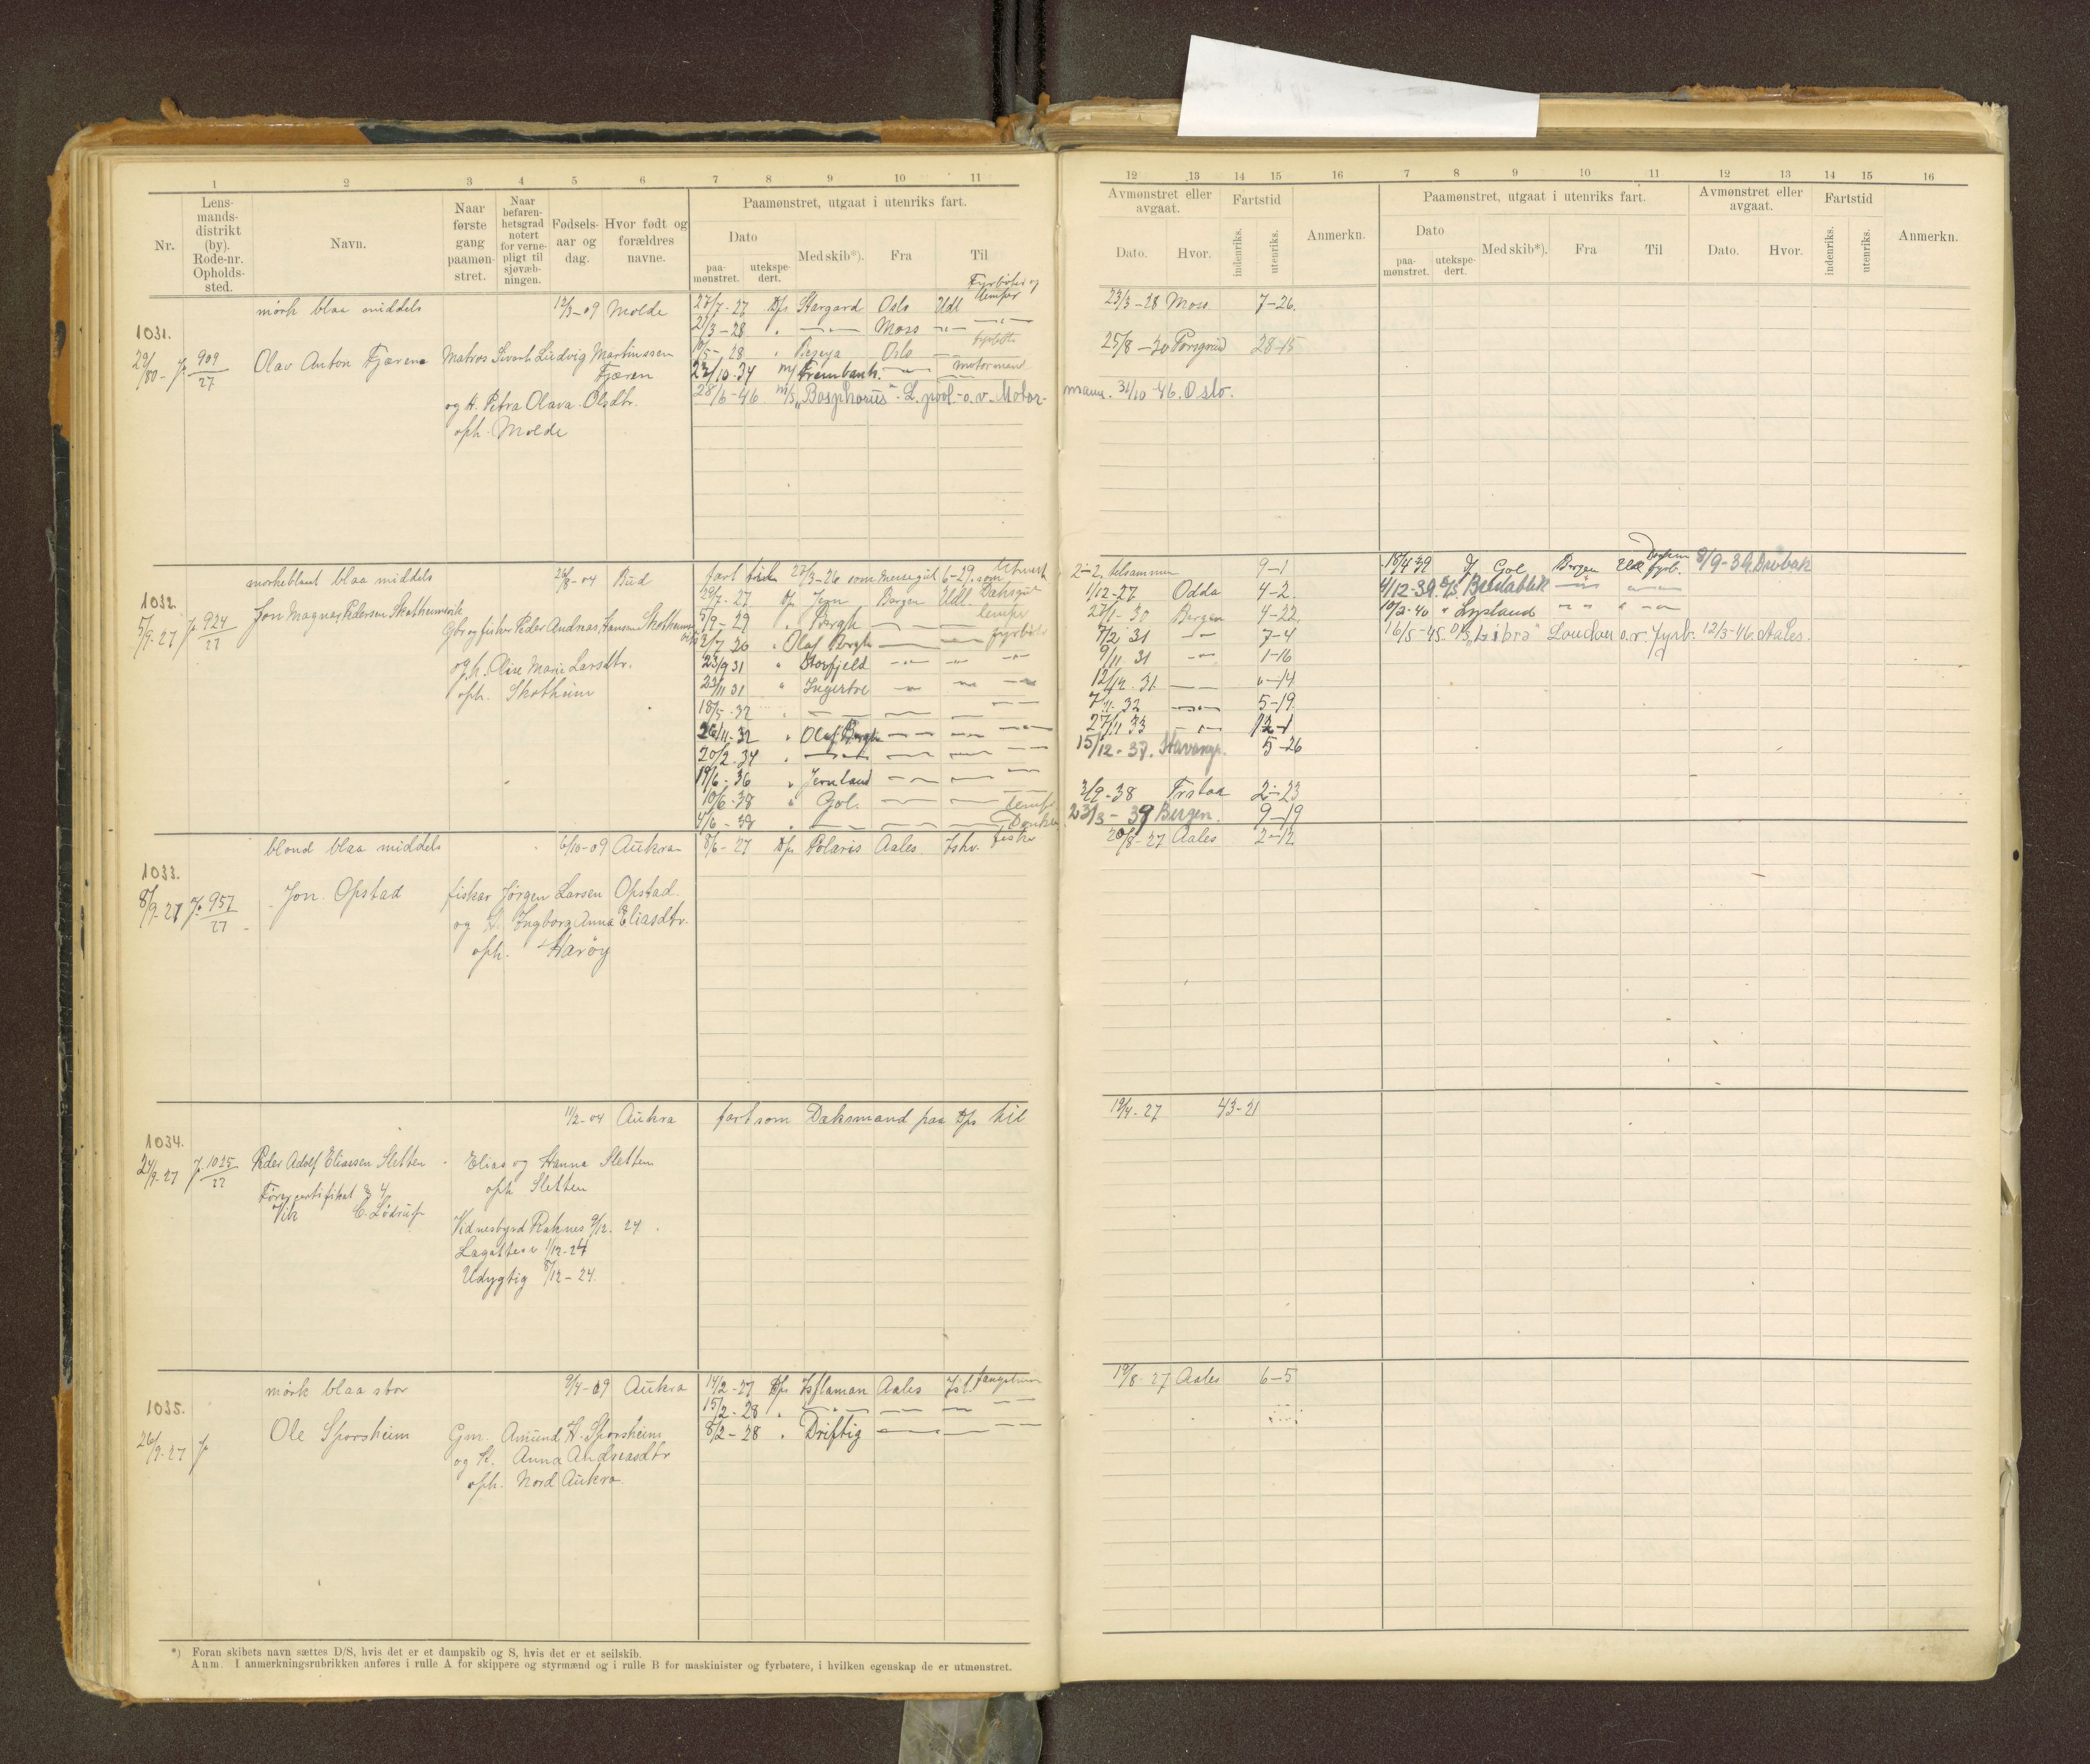 1 2 3 4 5 6 7 8 9 10 11
Nr.
Lens-
mands-
distrikt
(by).
Rode-nr.
Opholds-
sted.
Navn.
Naar
første
gang
paamøn-
stret.
Naar
befaren-
hetsgrad
notert
for verne-
pligt til
sjøvæb-
ningen.
Fødsels-
aar og
dag.
Hvor født og
forældres
navne.
Paamønstret, utgaat i utenriks fart.
Dato
paa-
mønstret.
utekspe-
dert.
Med skib*).
Fra
Til
12 13 14 15 16 7 8 9 10 11 12 13 14 15 16
Avmønstret eller
avgaat.
Dato.
Hvor.
Fartstid
indenriks.
utenriks.
Anmerkn.
Paamønstret, utgaat i utenriks fart.
Dato
paa-
mønstret.
utekspe-
dert.
Med skib*).
Fra
Til
Avmønstret eller
avgaat.
Dato.
Hvor.
Fartstid
indenriks.
utenriks.
Anmerkn.
1031.
909/27
mörk blaa middels
12/3-09 Molde
Olav Anton Fjæren
Matros Sivert Ludvig Martinussen
Fjæren
og H. Petra Olava Olsdtr.
oph. Molde
Fyrböter og
27/7-27 D/s Stargard Oslo Utl lemper
21/3-28 " Moss
10/5-28 " Oslo
22/10-34 M/s Frembank. motormand
28/6-46 M/s "Bosphorus" L.pool - o.v. Motor-
23/3-28 Moss 7-26.
25/8-30 Porsgrund 28-15
mann. 31/10-46. Oslo.
1032.
5/9-27 924/27
mørkeblont blaa middels
26/8-04 Bud
Jon Magnus Pedersen Skotheimsvik
Gbr og fisker Peder Andreas Hansen Skotheims
vik
og h. Oline Marie Larsdtr.
oph. Skotheim
fart siden 27/3-26 som messegut 6-29. som
29/7-27 D/s Jern Bergen Utl. Daksgut
5/9-29 " Bergh lemper
3/7 30 " Olaf Bergh fyrböter
23/9 31 " Storfjeld
23/11 31 " Ingertre
18/5-32 "
26/11-32 " Olaf Bergh
20/2-34 "
19/6-36 " Jernland
10/6-38 " Gol. lemper
4/6-38 " Donkey
2-2. tilsammen 9-1
1/12-27 Odda 4-2.
27/1-30 Bergen 4-22
7/2 31 7-4
9/11 31 1-16
12/12-31 "-14
7/11-32 5-19
27/11 33 12-1
15/12-37. Stavanger. 5-26
3/9-38 2-23
23/3-39 Bergen. 9-19
18/4 39 D/s Gol Bergen Utl fyrb. 8/9-39. Drøbak
4/12-39. D/s. Breidablik
10/2-40 " Lysland
16/5-45. D/s "Libra" London o.v. fyrb. 12/3-46. Aales.
1033.
8/9-27 957/27
blond blaa middels
6/10-09 Aukra
Jon Opstad
fisker Jörgen Larsen Opstad.
og H. Ingborg Anna Eliasdtr.
oph. Haröy
8/6-27 D/s Polaris Aales Ishv. fisker
20/8-27 Aales 2-12
1034.
24/9-27 1025/27
11/2-04 Aukra
Peder Adolf Eliassen Sletten
Elias og Hanna Sletten
oph Sletten
Vidnesbyrd Raknes 9/12-24.
Legattest 1/12-24
Udygtig 8/12-24.
fart som Daksmand paa D/s til
19/4-27 43-21
1035.
26/9-27
mörk blaa stor
9/4-09 Aukra
Ole Sporsheim
Gm. Amund H. Sporsheim
og H. Anna Andreasdtr
oph. Nord Aukra
14/2-27 D/s Isflaman Aales Ish. fangstman
15/2-28 "
8/2-28 " Driftig
19/8-27 Aales 6-5
*) Foran skibets navn sættes D/S, hvis det er et dampskib og S, hvis det er et seilskib.
Anm. I anmerkningsrubrikken anføres i rulle A for skippere og styrmænd og i rulle B for maskinister og fyrbøtere, i hvilken egenskap de er utmønstret.